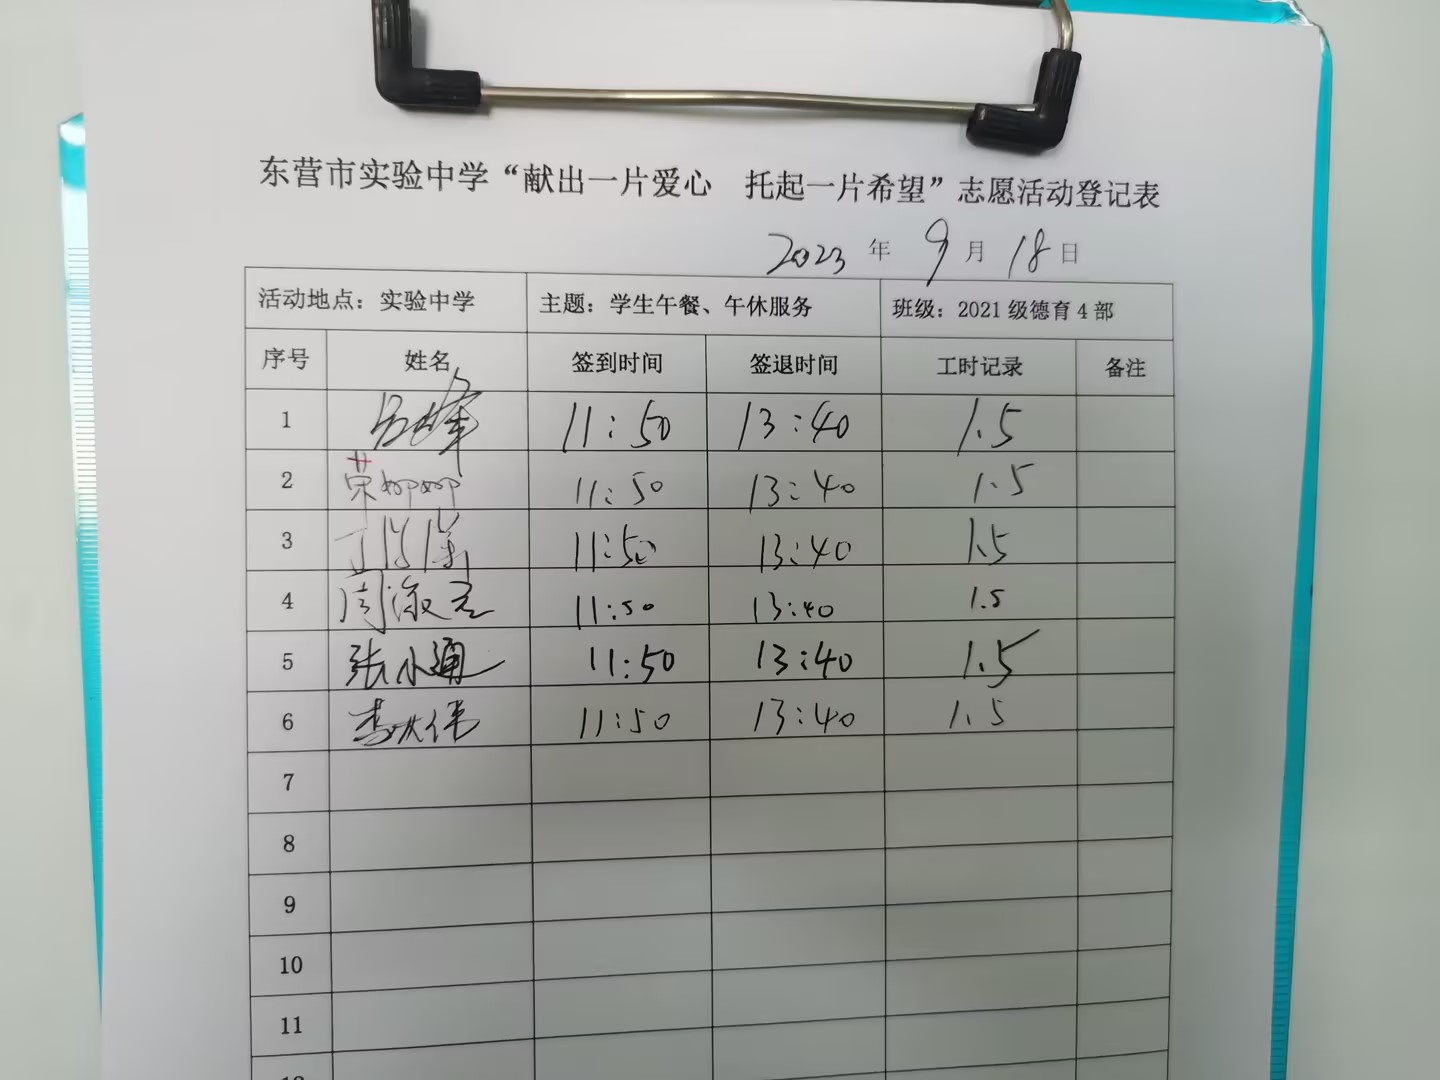 东营市实验中学“献出一片爱心 托起一片希望”志愿活动登记表
2023 年 9 月 18 日
活动地点：实验中学 主题：学生午餐、午休服务 班级：2021级德育4部
序号 姓名 签到时间 签退时间 工时记录 备注
1 11:50 13:40 1.5
2 荣娜娜 11:50 13:40 1.5
3 11:50 13:40 1.5
4 周淑 11:50 13:40 1.5
5 张小通 11:50 13:40 1.5
6 李 伟 11:50 13:40 1.5
7
8
9
10
11